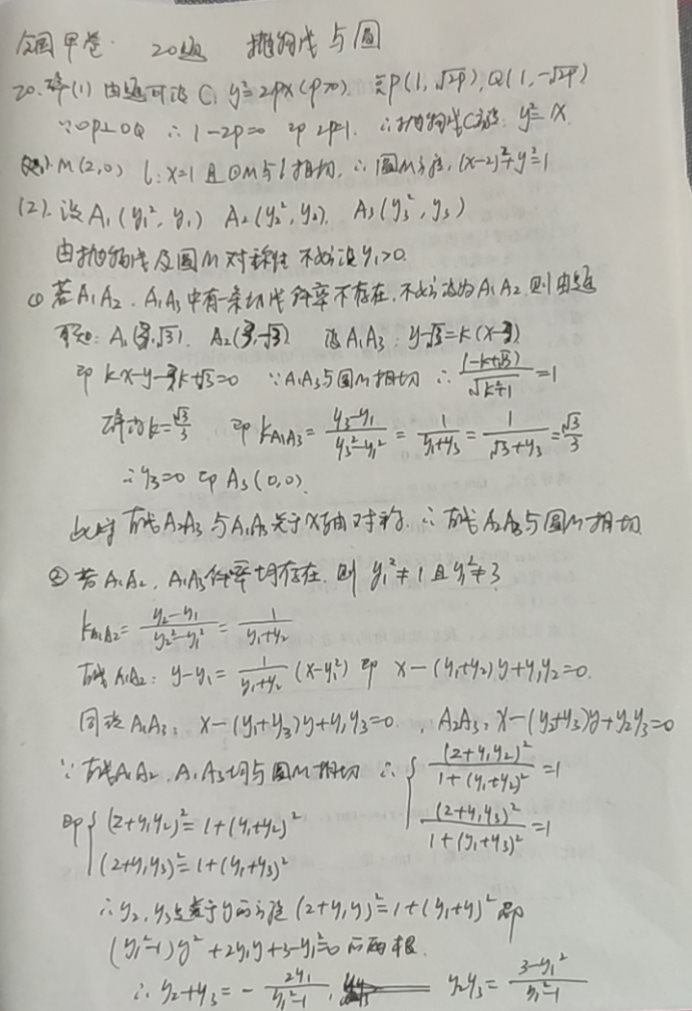 全国甲卷. 20题 抛物线与圆
20.解(1) 由题可设 C: y²=2px(p>0) 受P(1,√2p),Q(1,-√2p)
∵OP⊥OQ ∴1-2p=0 即2p=1. ∴抛物线C方程: y²=x
M(2,0) l:x=1且⊙M与l相切,∴圆M方程,(x-2)²+y²=1
(2). 设A₁(y₁²,y₁) A₂(y₂²,y₂), A₃(y₃²,y₃)
由抛物线及圆M对称性 不妨设y₁>0.
① 若A₁A₂、A₁A₃中有一条切线斜率不存在,不妨设为A₁A₂,则由题
可知: A₁(3,√3), A₂(3,-√3) 设A₁A₃: y-√3=k(x-3)
即 kx-y-3k+√3=0 ∵A₁A₃与圆M相切 ∴|-k+√3|/√(k²+1)=1
解为k=√3/3 即 k_{A₁A₃}=(y₃-y₁)/(y₃²-y₁²)=1/(y₁+y₃)=1/(√3+y₃)=√3/3
∴y₃=0 即A₃(0,0).
此时 直线A₂A₃与A₁A₃关于x轴对称. ∴直线A₂A₃与圆M相切
② 若A₁A₂, A₁A₃斜率均存在, 则 y₁²≠1且y₁²≠3
k_{A₁A₂}=(y₂-y₁)/(y₂²-y₁²)=1/(y₁+y₂)
直线A₁A₂: y-y₁=1/(y₁+y₂)(x-y₁²) 即 x-(y₁+y₂)y+y₁y₂=0.
同理A₁A₃: x-(y₁+y₃)y+y₁y₃=0, A₂A₃: x-(y₂+y₃)y+y₂y₃=0
∵直线A₁A₂、A₁A₃均与圆M相切 ∴{(2+y₁y₂)²/(1+(y₁+y₂)²)=1
(2+y₁y₃)²/(1+(y₁+y₃)²)=1
即{(2+y₁y₂)²=1+(y₁+y₂)²
(2+y₁y₃)²=1+(y₁+y₃)²
∴y₂,y₃是关于y的方程(2+y₁y)²=1+(y₁+y)²即
(y₁²-1)y²+2y₁y+3-y₁²=0的两根.
∴y₂+y₃=-2y₁/(y₁²-1), y₂y₃=(3-y₁²)/(y₁²-1)